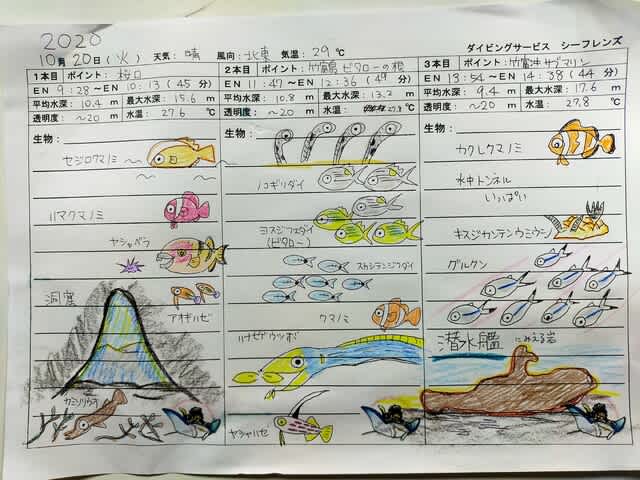 2020
10月20日(火) 天気: 晴 風向: 北東 気温: 29℃
ダイビングサービス シーフレンズ
1本目 ポイント: 桜口
EN 9:28 ～EN 10:13 (45分)
平均水深: 10.4 m 最大水深: 15.6 m
透明度: ～20 m 水温: 27.6 ℃
生物:
セジロクマノミ
ハマクマノミ
ヤシャベラ
洞窟
アオギハゼ
カミソリウオ
2本目 ポイント: 竹富 ビタローの根
EN 11:47 ～EN 12:36 (49分)
平均水深: 10.8 m 最大水深: 13.2 m
透明度: ～20 m 水温: 27.8 ℃
生物:
ノコギリダイ
ヨスジフエダイ
(ビタロー)
スカシテンジクダイ
クマノミ
ハナヒゲウツボ
ヤシャハゼ
3本目 ポイント: 竹富沖サブマリン
EN 13:54 ～EN 14:38 (44分)
平均水深: 9.4 m 最大水深: 17.6 m
透明度: ～20 m 水温: 27.8 ℃
生物:
カクレクマノミ
水中トンネル
いっぱい
キスジカンテンウミウシ
グルクン
潜水艦 にみえる岩